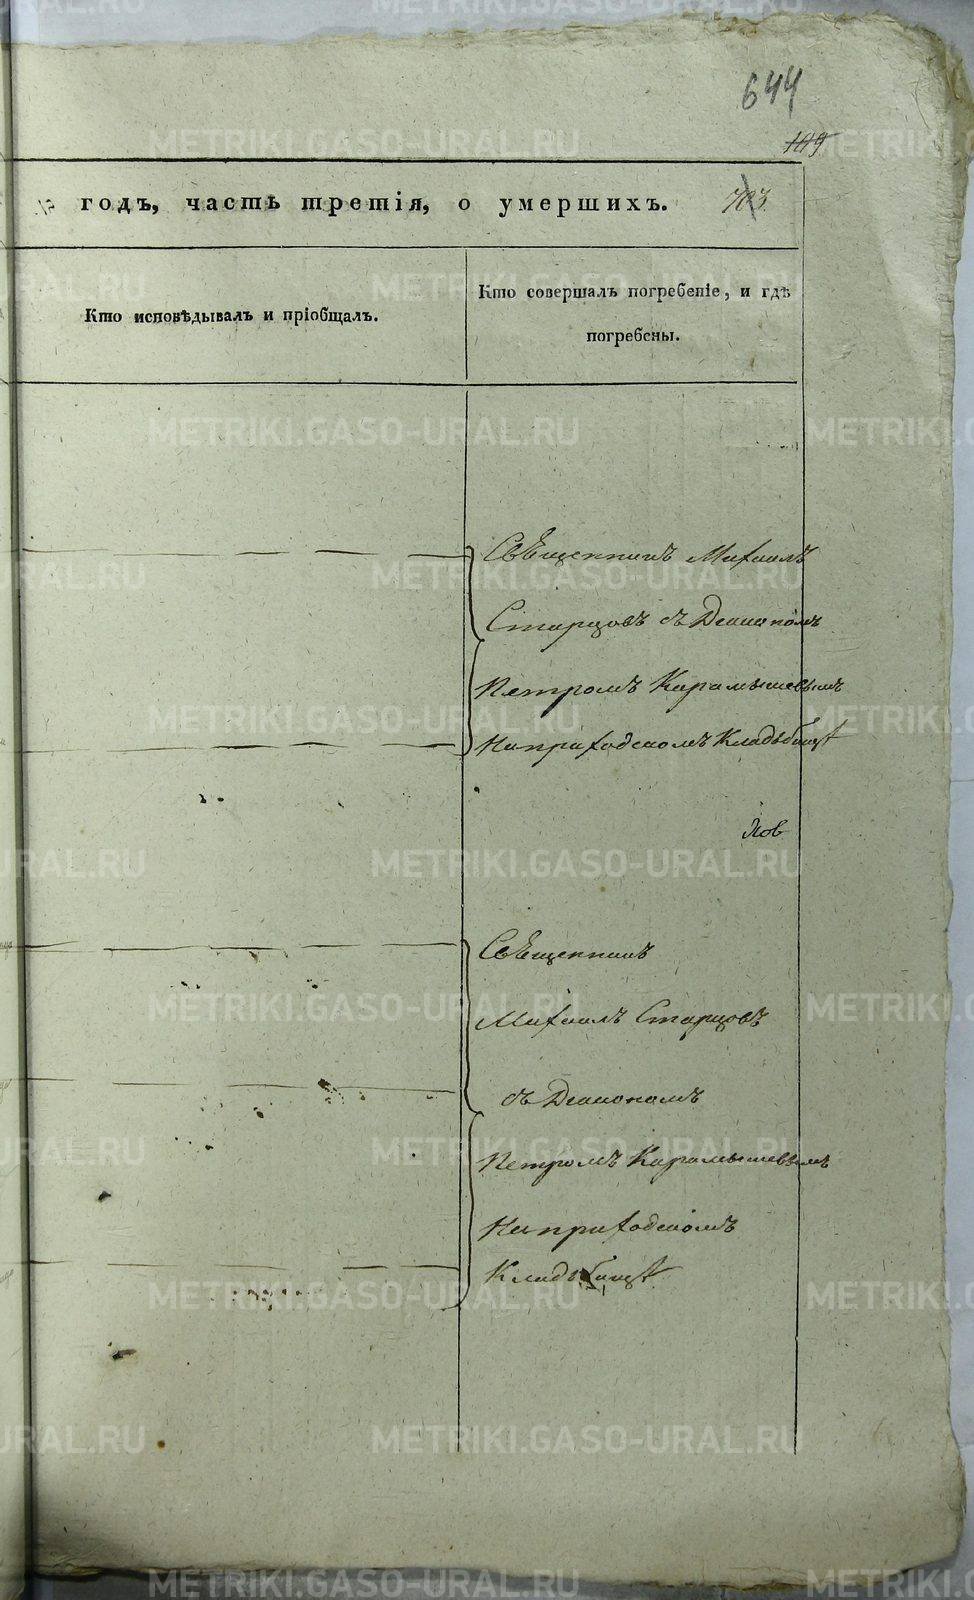 644
109
годъ, часть третія, о умершихъ.
703
Кто исповѣдывалъ и пріобщалъ.
Кто совершалъ погребеніе, и гдѣ
погребены.
Священникъ Михаилъ
Старцовъ съ Дьякономъ
Петромъ Карамышевымъ
На приходскомъ Кладбищѣ
Священникъ
Михаилъ Старцовъ
съ Дьякономъ
Петромъ Карамышевымъ
На приходскомъ
Кладбищѣ
METRIKI.GASO-URAL.RU